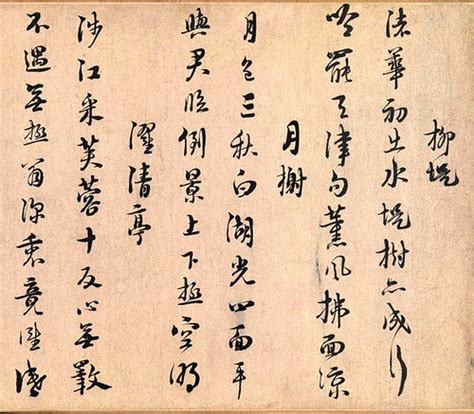 柳堤
渚華初出水堤樹亦成行
吟罷天津句薰風拂面涼
月榭
月色三秋白湖光四面平
與君臨倒景上下極空明
濯清亭
涉江采芙蓉十反心無斁
不遇無極翁深衷竟誰識